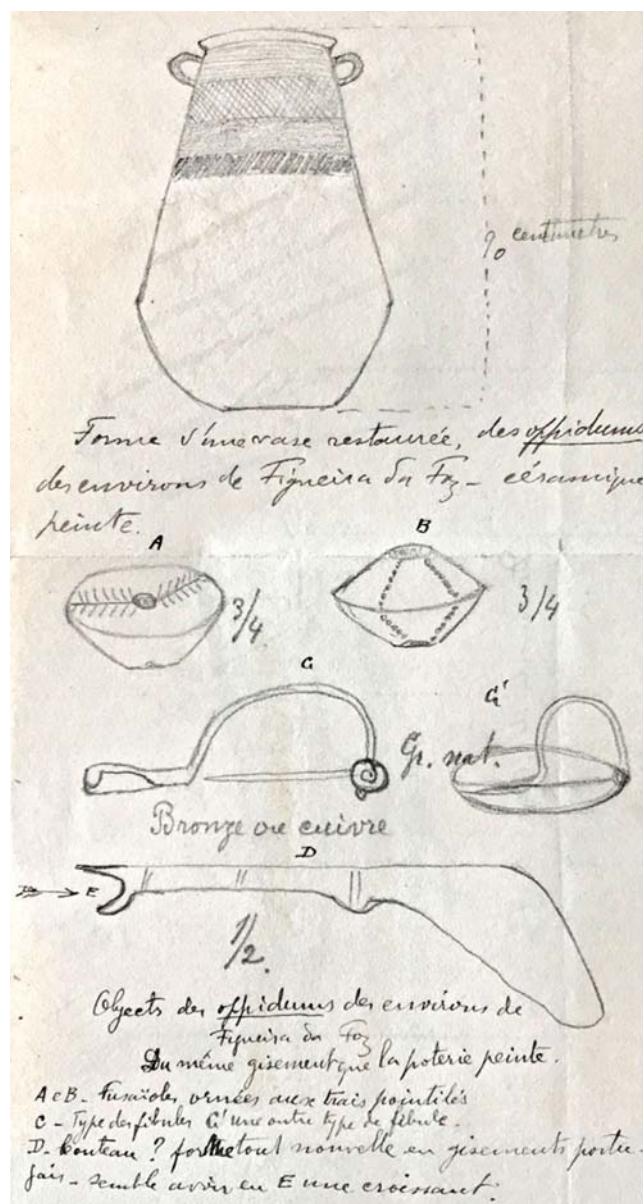 90 centimetres
Forme d'une vase restaurée, des oppidums
des environs de Figueira da Foz - céramique
peinte.
A
B
3/4
3/4
C
C'
Gr. nat.
Bronze ou cuivre
D
E
1/2.
Objects des oppidums des environs de
Figueira da Foz
Du même gisement que la poterie peinte.
A e B - Fusaïoles ornées aux trais pointilés
C - Type des fibules C' une outre type de fibule.
D - Couteau ? forme tout nouvelle en gisements portu-
gais - semble avoir en E une croissant.